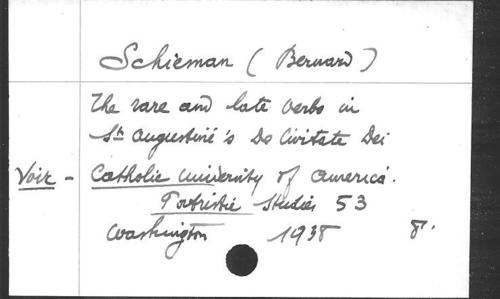 Schieman (Bernard)
The rare and late verbs in
St Augustine's De Civitate Dei
Voir - Catholic University of America.
Patristic Studies 53
Washington 1938 8°.